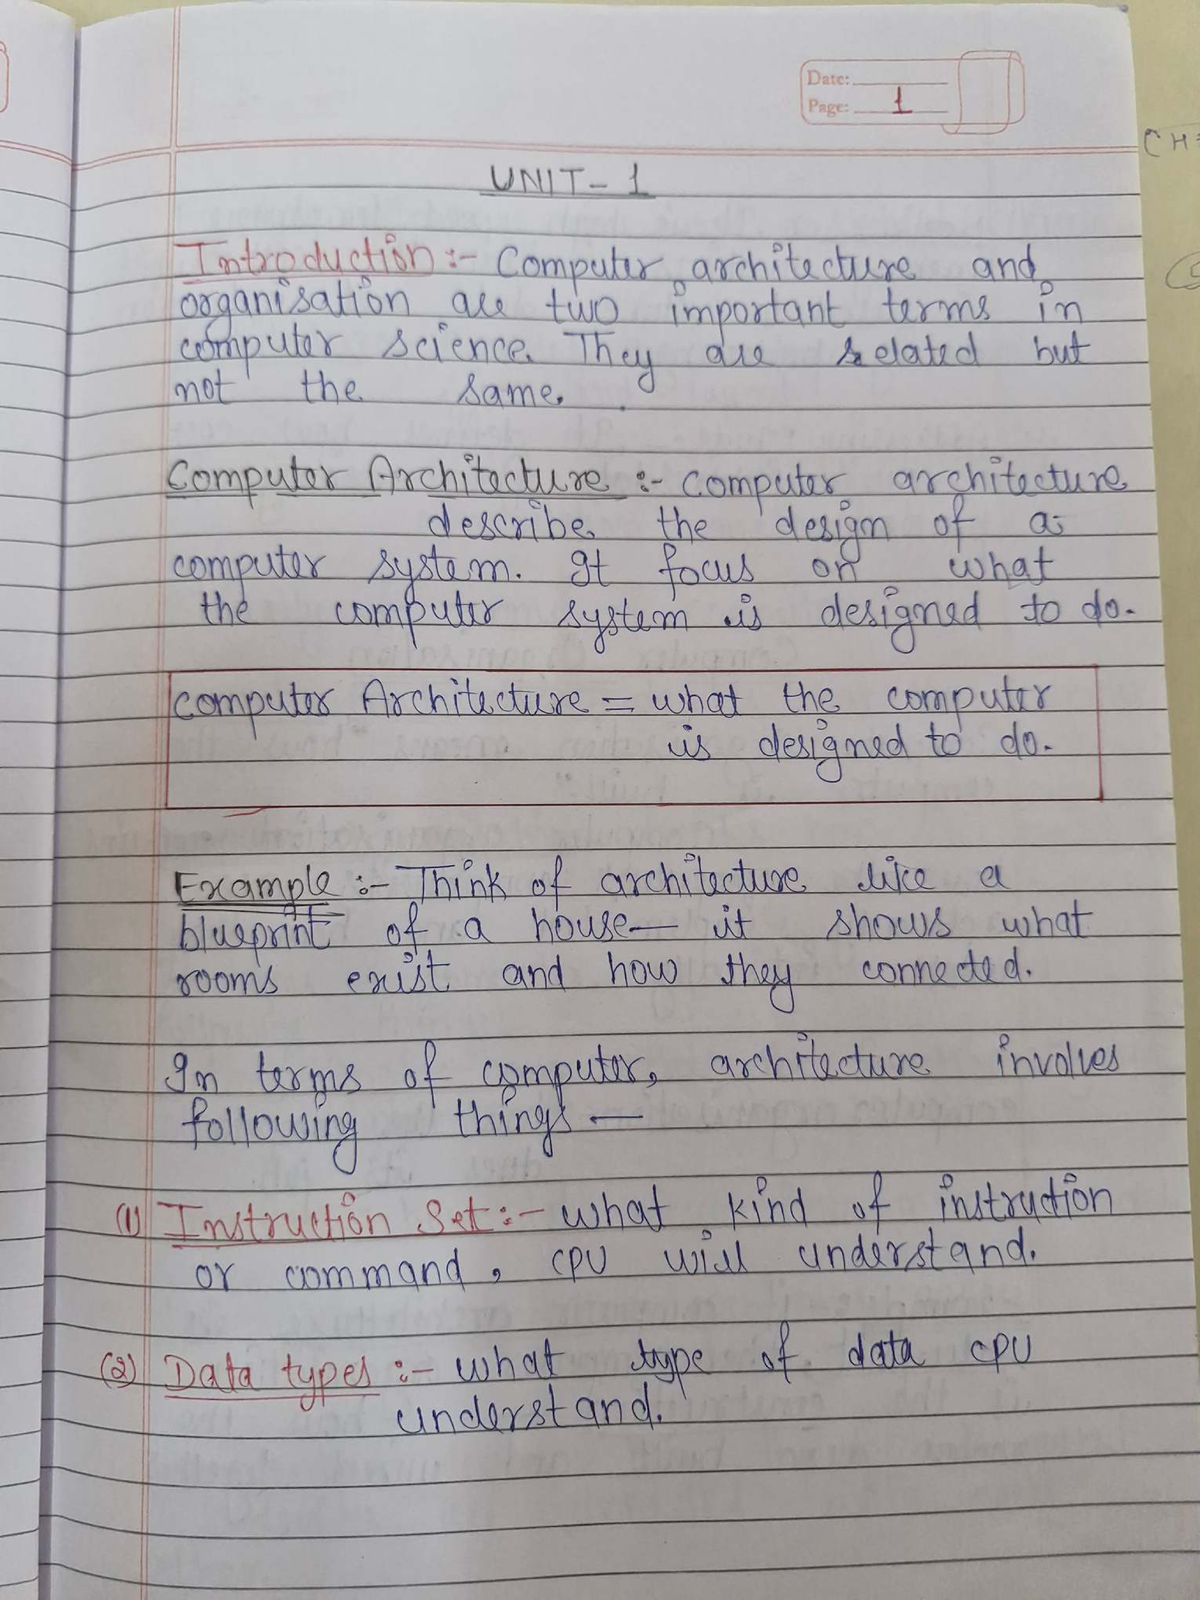 Date:
Page: 1
CH
UNIT-1
Introduction :- Computer architecture and
organisation are two important terms in
computer science. They are related but
not the same.
Computer Architecture :- Computer architecture
describe the design of a
computer system. It focus on what
the computer system is designed to do.
computer Architecture = what the computer
is designed to do.
Example :- Think of architecture like a
blueprint of a house— it shows what
rooms exist and how they connected.
In terms of computer, architecture involves
following things —
(1) Instruction Set :- what kind of instruction
or command, CPU will understand.
(2) Data types :- what type of data CPU
understand.